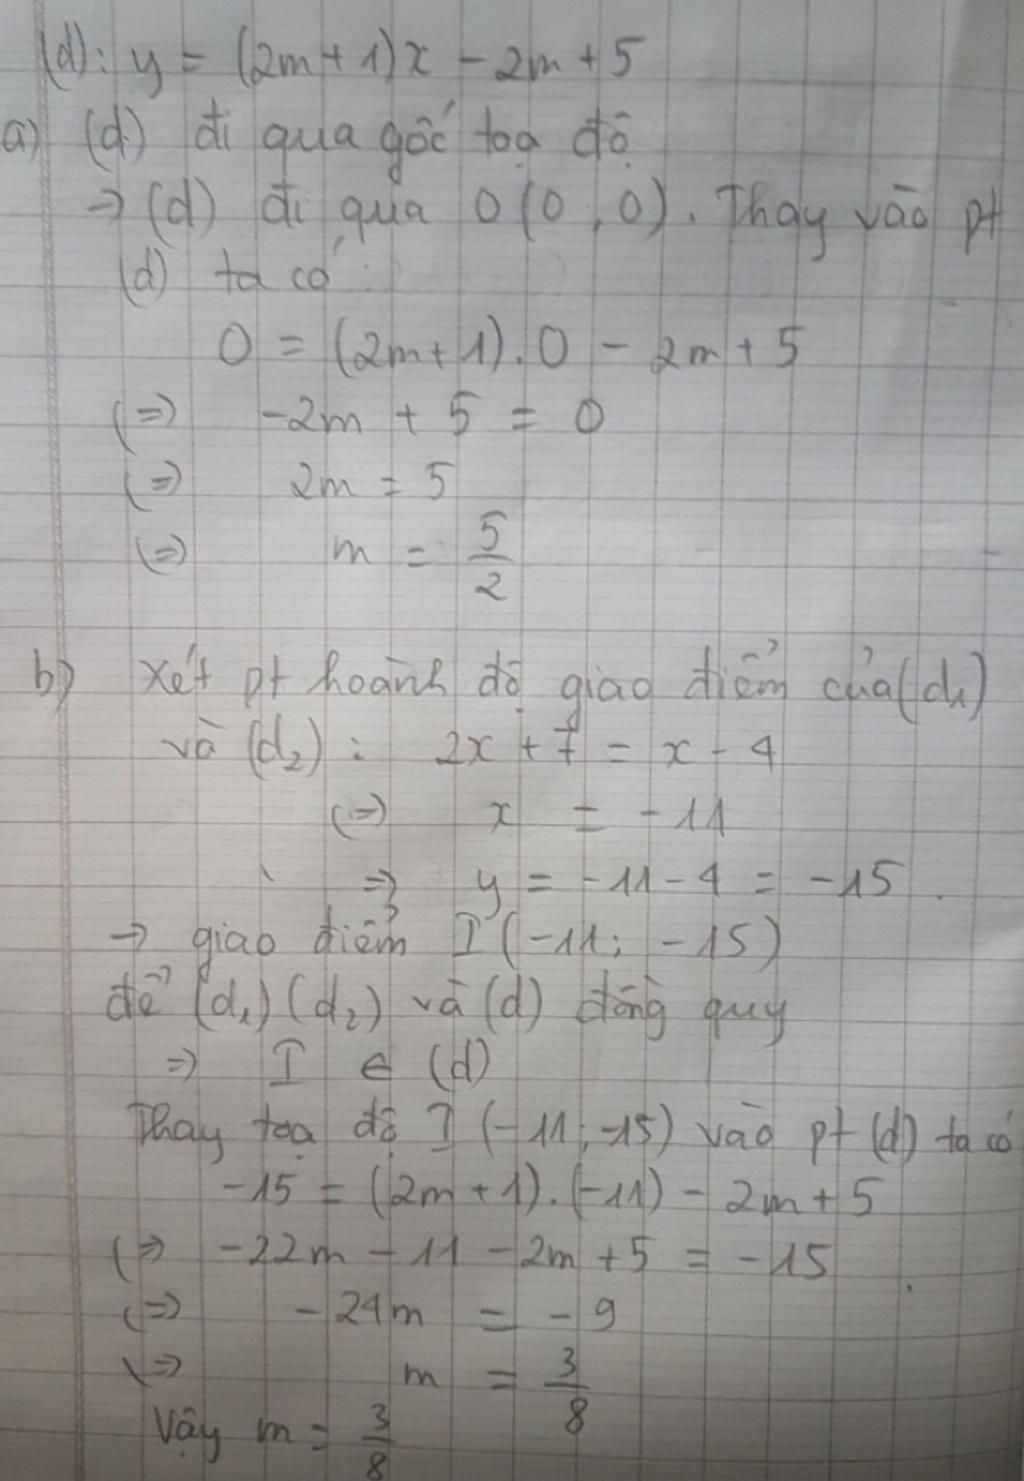 (d): y = (2m+1)x - 2m + 5
a) (d) đi qua gốc toạ độ
→ (d) đi qua O(0,0). Thay vào pt
(d) ta có:
0 = (2m+1).0 - 2m + 5
(=) -2m + 5 = 0
(=) 2m = 5
(=) m = 5/2
b) Xét pt hoành độ giao điểm của (d1)
và (d2): 2x + 7 = x - 4
(=) x = -11
=> y = -11 - 4 = -15.
→ giao điểm I(-11; -15)
để (d1) (d2) và (d) đồng quy
=> I ∈ (d)
Thay toạ độ I (-11; -15) vào pt (d) ta có
-15 = (2m+1).(-11) - 2m + 5
(=> -22m - 11 - 2m + 5 = -15
(=) -24m = -9
(=> m = 3/8
Vậy m = 3/8